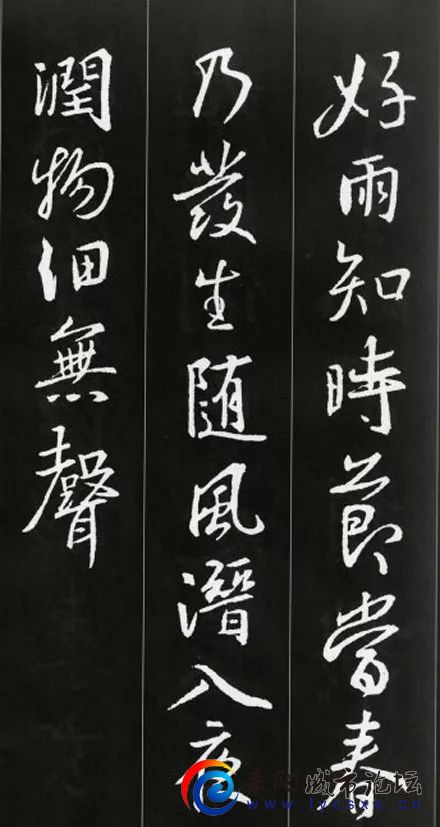 好雨知時節當春
乃發生随風潛入夜
潤物細無聲
耒阳城市论坛
www.lycsxx.cn